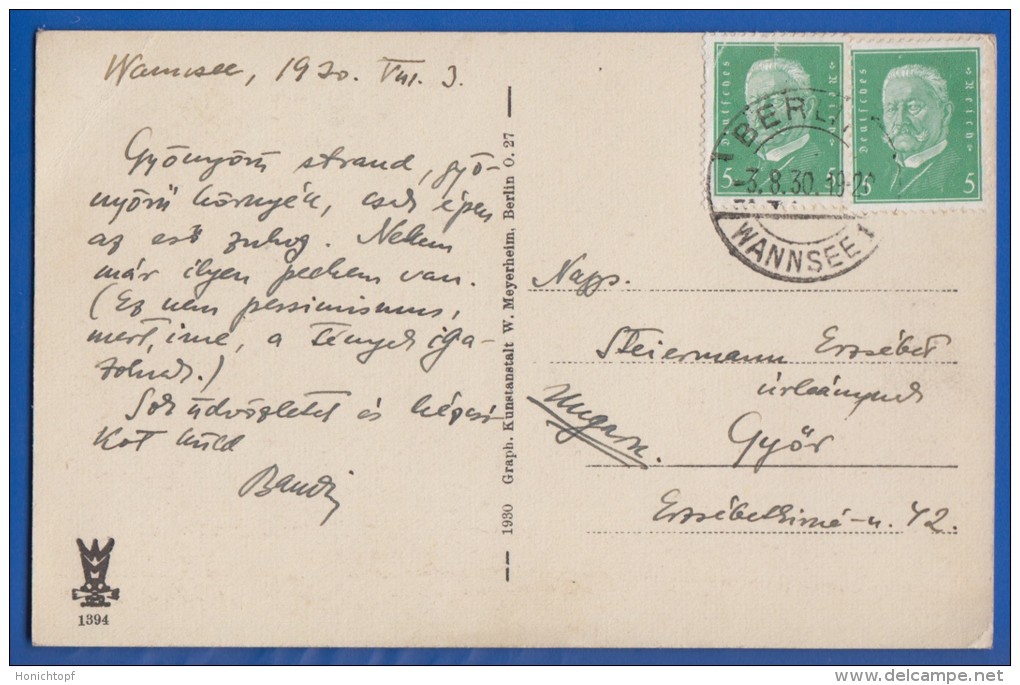 Wannsee, 1930. VIII. 3.
Gyönyörü strand, gyö-
nyörü környék, csak épen
az eső zuhog. Nekem
már ilyen pechem van.
(Ez nem pessimismus,
mert, ime, a tények iga-
zolnak.)
Sok üdvözletet és kézcsó-
kot küld
Bandi
1394
1930 Graph. Kunstanstalt W. Meyerheim, Berlin O. 27
Deutsches Reich
5
Deutsches Reich
5 5
BERLIN
-3.8.30. 19-20
WANNSEE 1
Nagys.
Steiermann Erzsébet
úrleánynak
Ungarn.
Győr
Erzsébetkirné-u. 42.
Honichtopf
delcampe.net